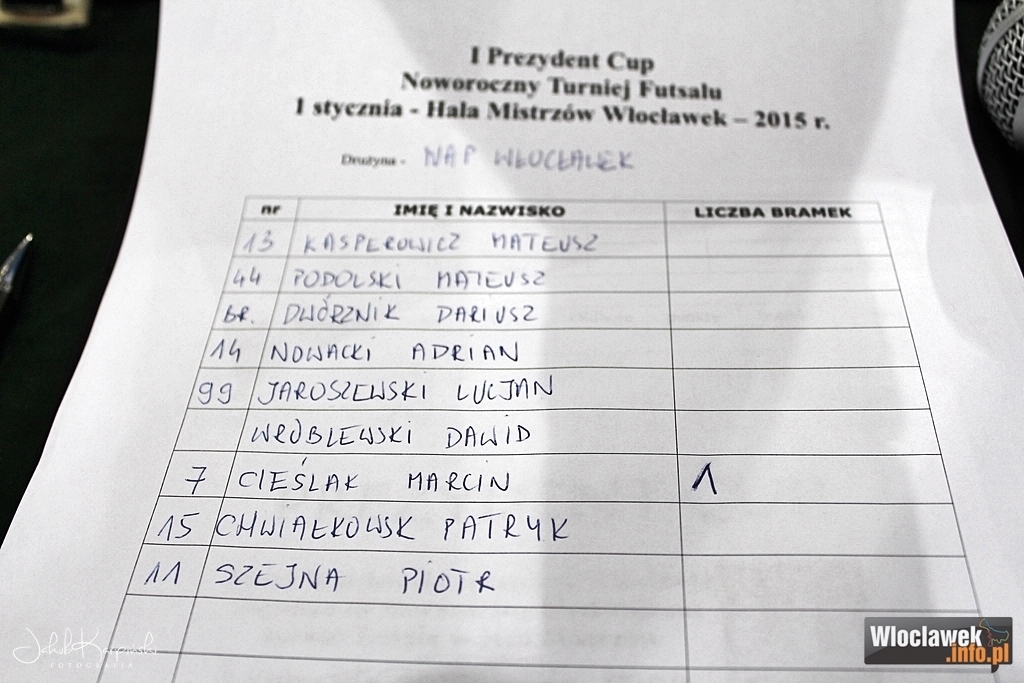 I Prezydent Cup
Noworoczny Turniej Futsalu
1 stycznia - Hala Mistrzów Włocławek – 2015 r.
Drużyna - NAP WŁOCŁAWEK
nr IMIĘ I NAZWISKO LICZBA BRAMEK
13 KASPEROWICZ MATEUSZ
44 PODOLSKI MATEUSZ
br. DWÓRZNIK DARIUSZ
14 NOWACKI ADRIAN
99 JAROSZEWSKI LUCJAN
WRÓBLEWSKI DAWID
7 CIEŚLAK MARCIN 1
15 CHWIAŁKOWSK PATRYK
11 SZEJNA PIOTR
Jakub Karpiński
FOTOGRAFIA
Wloclawek
.info.pl